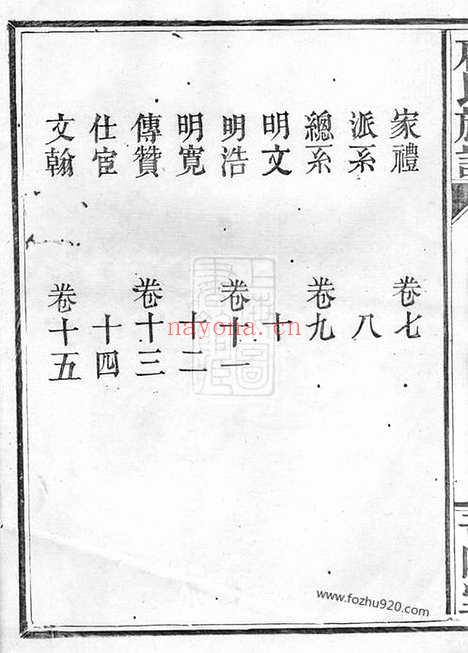 家禮 卷七
派系 八
總系 卷九
明文 十
明浩 卷十一
明寬 十二
傳贊 卷十三
仕宦 十四
文翰 卷十五
nayona.cn
www.fozhu920.com